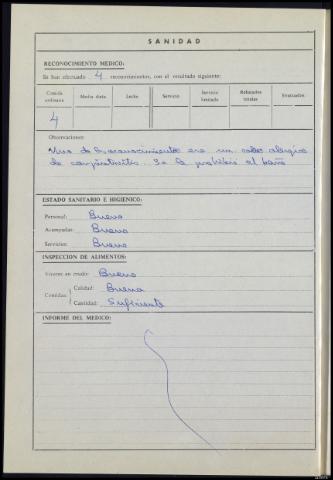 SANIDAD
RECONOCIMIENTO MEDICO:
Se han efectuado 4 reconocimientos, con el resultado siguiente:
Comida ordinaria Media dieta Leche Servicio Servicio limitado Rebajados totales Evacuados
4
Observaciones:
Uno de los reconocimientos era un caso alergico
de conjuntivitis. Se le prohibió el baño
ESTADO SANITARIO E HIGIENICO:
Personal: Bueno
Acampada: Bueno
Servicios: Bueno
INSPECCION DE ALIMENTOS:
Víveres en crudo: Bueno
Comidas: Calidad: Buena
Cantidad: Suficiente
INFORME DEL MEDICO: